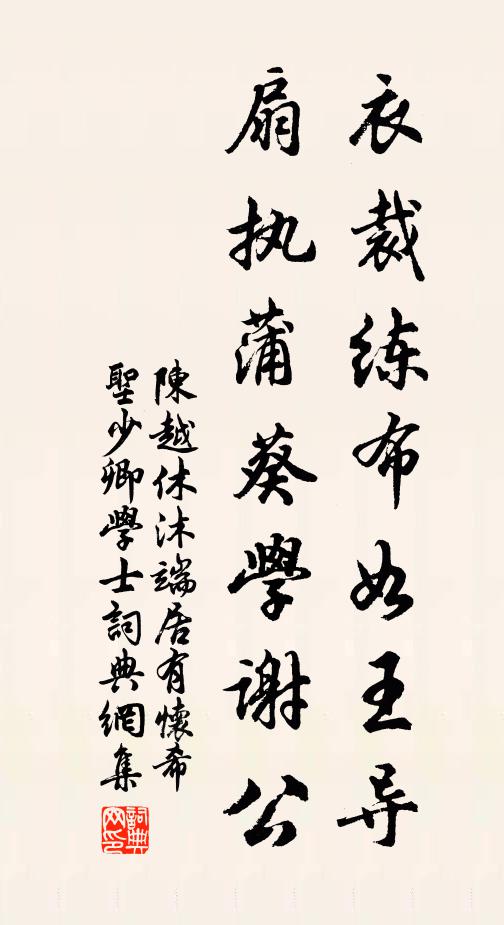 衣裁练布如王导
扇执蒲葵學谢公
陳越休沐端居有懷希
聖少卿學士詞典網集
詞典网印